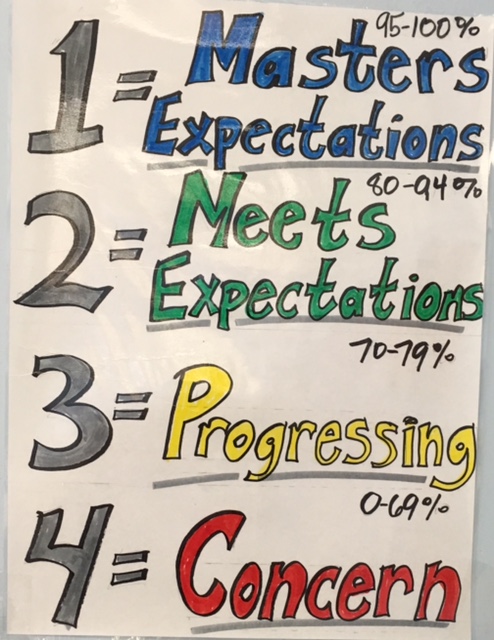 95-100%
1 = Masters
Expectations
80-94%
2 = Meets
Expectations
70-79%
3 = Progressing
0-69%
4 = Concern